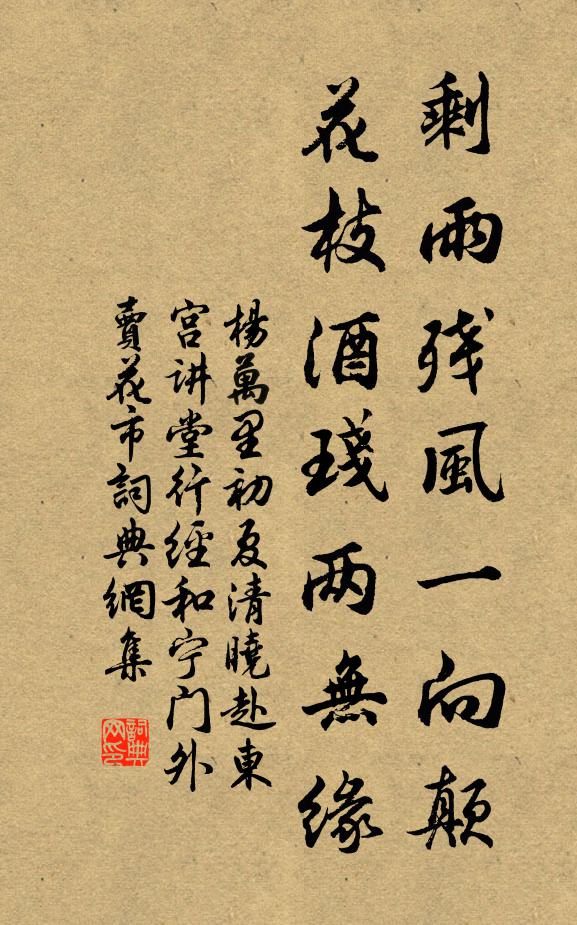 剩雨残風一向顛
花枝酒琖两無緣
楊萬里初夏清曉赴東
宫讲堂行經和宁门外
賣花市詞典網集
詞典
网印